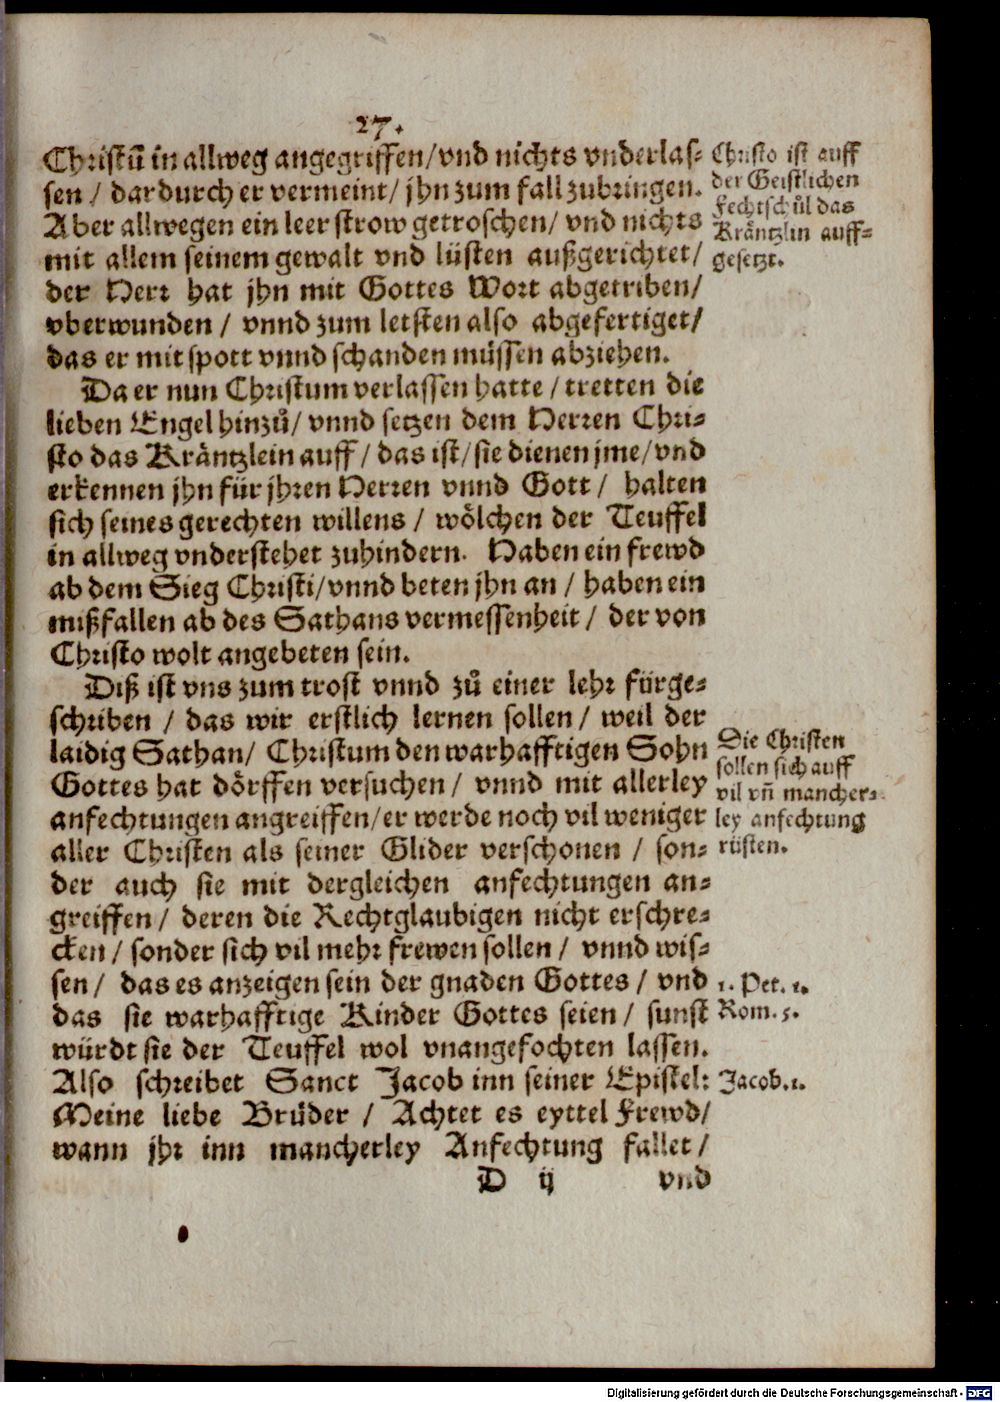 27.
Christū in allweg angegriffen/vnd nichts vnderlas-
sen / dardurch er vermeint/ jhn zum fall zubringen.
Aber allwegen ein leer strow getroschen/ vnd nichts
mit allem seinem gewalt vnd lüsten außgerichtet/
der Herr hat jhn mit Gottes Wort abgetriben/
vberwunden / vnnd zum letsten also abgefertiget/
das er mit spott vnnd schanden müssen abziehen.
Christo ist auff
der Geistlichen
Fechtschůl das
Kräntzlin auff-
gesetzt.
Da er nun Christum verlassen hatte / tretten die
lieben Engel hinzů/ vnnd setzen dem Herren Chri-
sto das Kräntzlein auff / das ist/ sie dienen jme/ vnd
erkennen jhn für jhren Herren vnnd Gott / halten
sich seines gerechten willens / wölchen der Teuffel
in allweg vnderstehet zuhindern. Haben ein frewd
ab dem Sieg Christi/ vnnd beten jhn an / haben ein
mißfallen ab des Sathans vermessenheit / der von
Christo wolt angebeten sein.
Diß ist vns zum trost vnnd zů einer lehr fürge-
schriben / das wir erstlich lernen sollen / weil der
laidig Sathan/ Christum den warhafftigen Sohn
Gottes hat dörffen versuchen / vnnd mit allerley
anfechtungen angreiffen/ er werde noch vil weniger
aller Christen als seiner Glider verschonen / son-
der auch sie mit dergleichen anfechtungen an-
greiffen / deren die Rechtglaubigen nicht erschre-
cken / sonder sich vil mehr frewen sollen / vnnd wis-
sen / das es anzeigen sein der gnaden Gottes / vnd
das sie warhafftige Kinder Gottes seien / sunst
würdt sie der Teuffel wol vnangefochten lassen.
Also schreibet Sanct Jacob inn seiner Epistel:
Meine liebe Brůder / Achtet es eyttel Frewd/
wann jhr inn mancherley Anfechtung fallet /
Die Christen
sollen sich auff
vil vñ mancher-
ley anfechtung
rüsten.
1. Pet. 1.
Rom. 5.
Jacob. 1.
D ij vnd
Digitalisierung gefördert durch die Deutsche Forschungsgemeinschaft - DFG